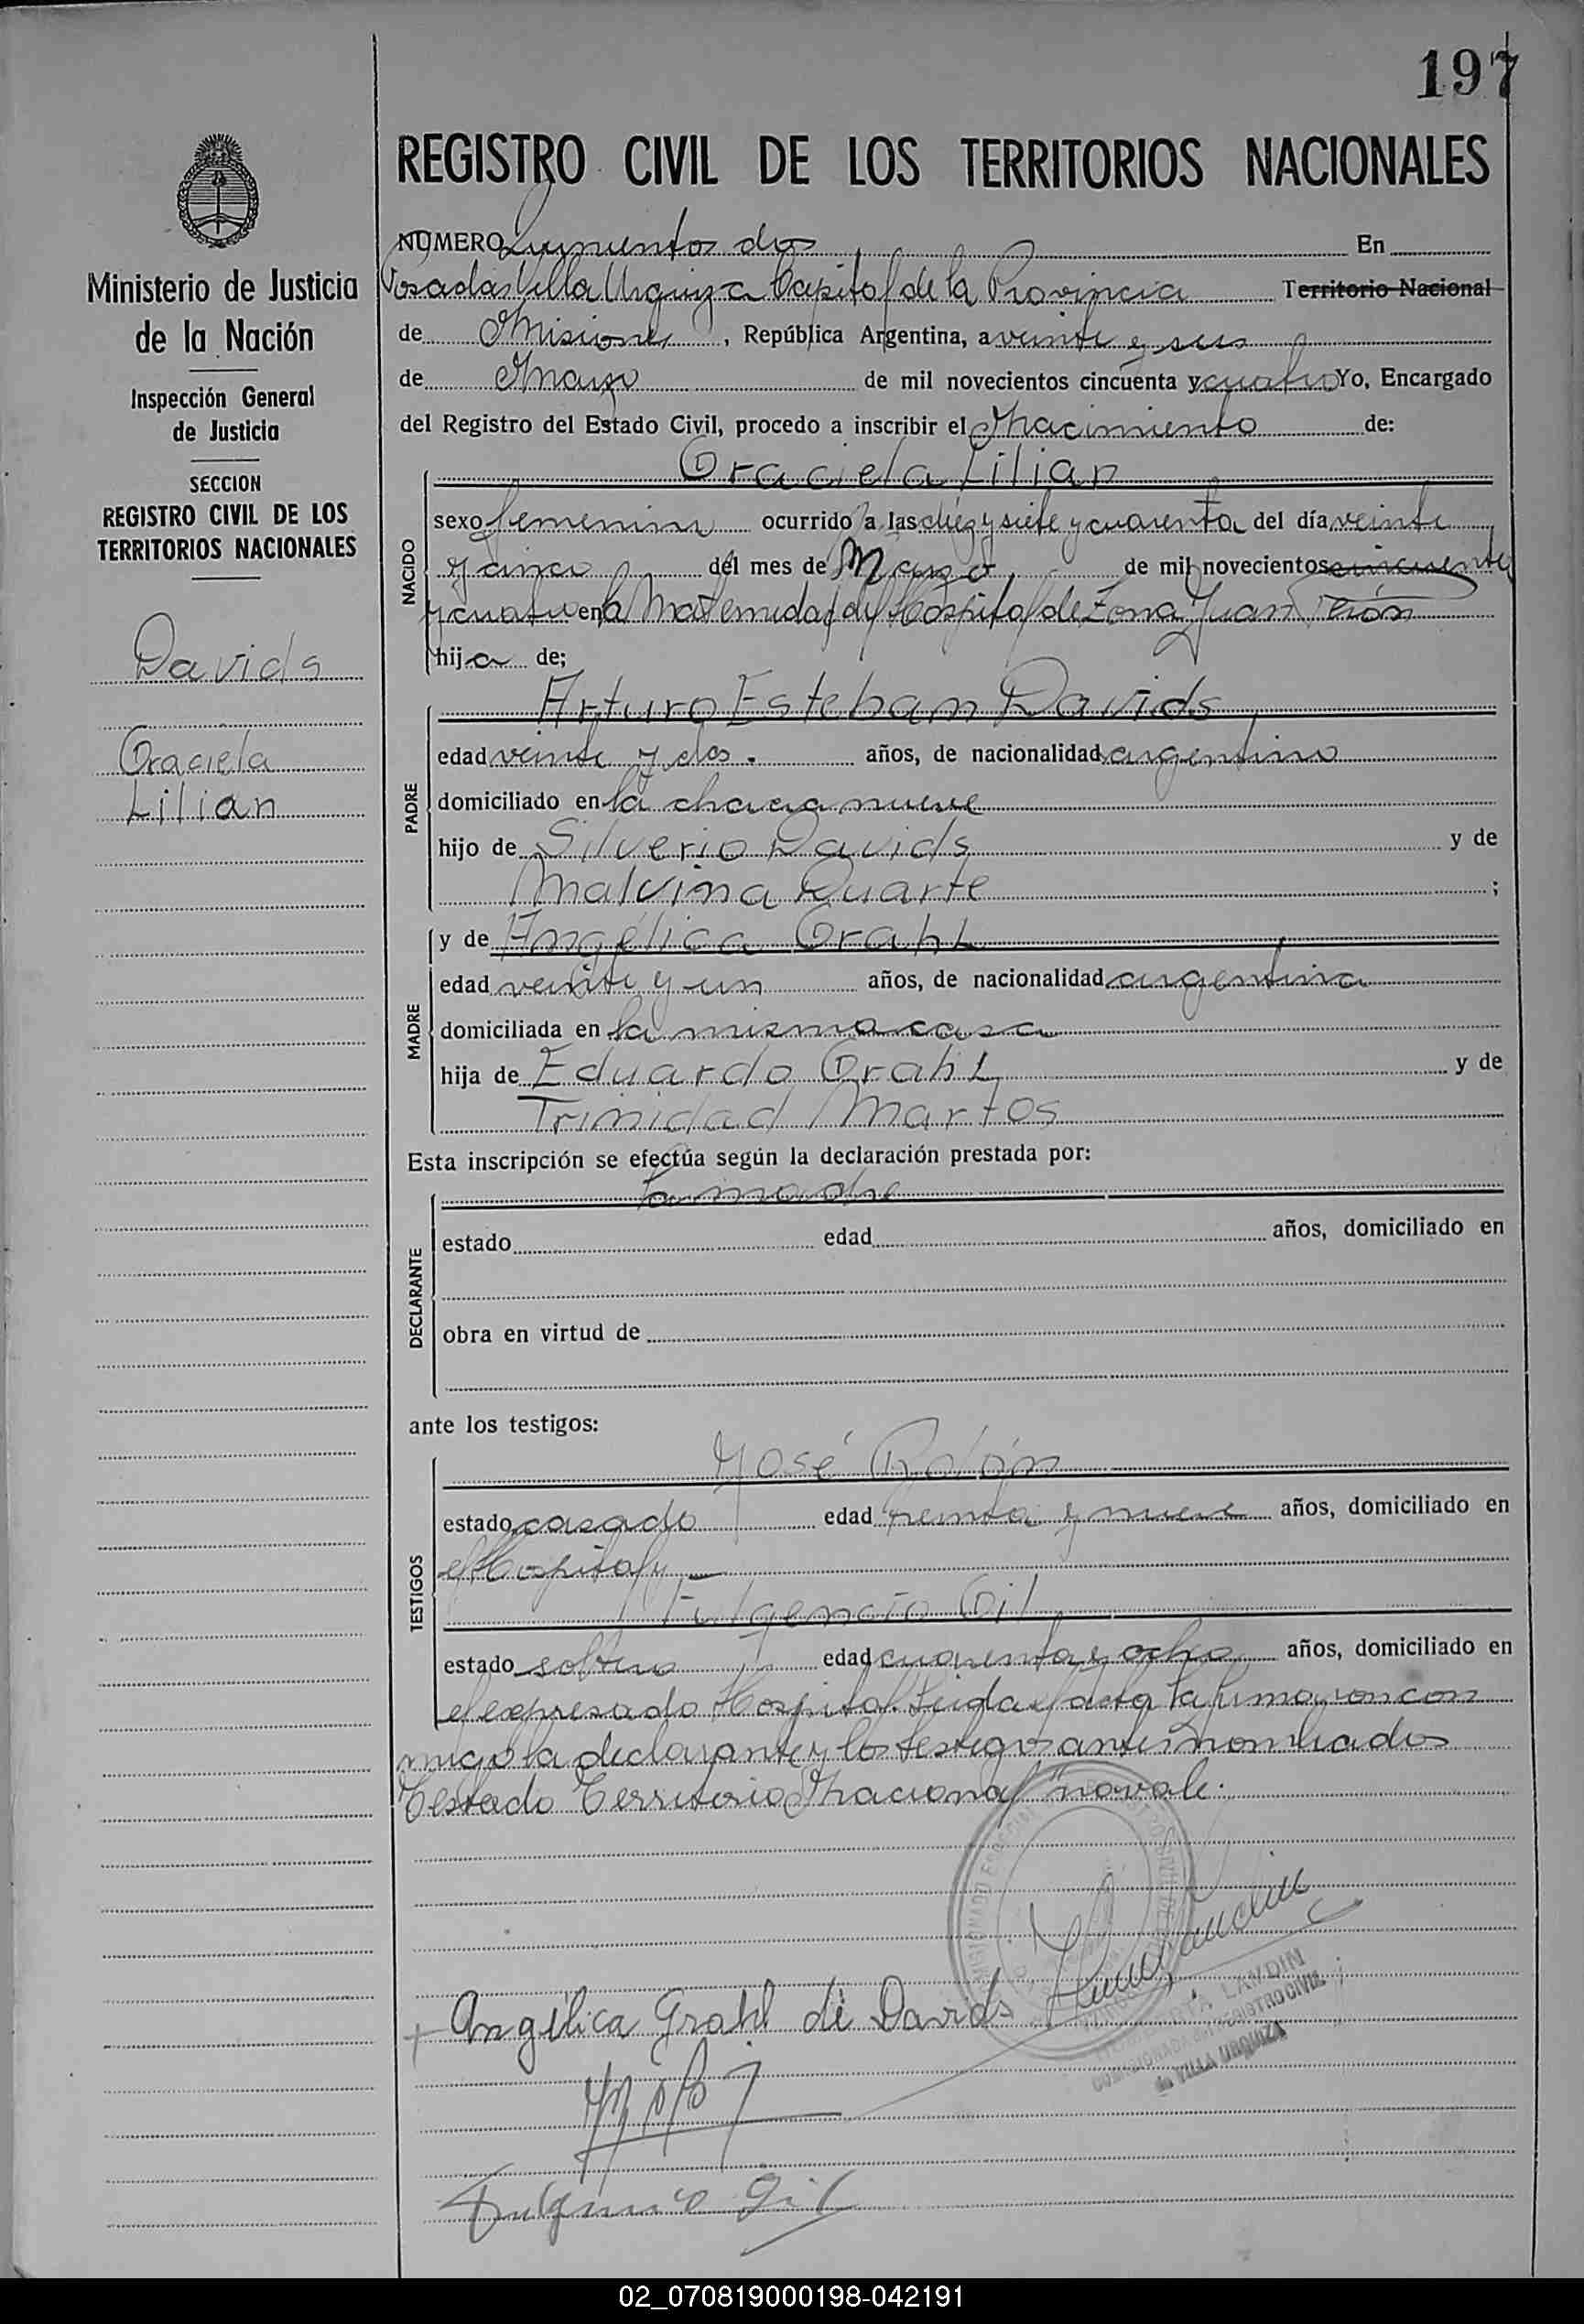 197
REGISTRO CIVIL DE LOS TERRITORIOS NACIONALES
Ministerio de Justicia
de la Nación
Inspección General
de Justicia
SECCION
REGISTRO CIVIL DE LOS
TERRITORIOS NACIONALES
Davids
Graciela
Lilian
NUMERO dos En
Posadas Villa Urquiza Capital de la Provincia Territorio Nacional
de Misiones, República Argentina, a veinte y seis
de Marzo de mil novecientos cincuenta y cuatro Yo, Encargado
del Registro del Estado Civil, procedo a inscribir el Nacimiento de:
NACIDO
Graciela Lilian
sexo femenino ocurrido a las diez y siete y cuarenta del día veinte
y cinco del mes de Marzo de mil novecientos cincuenta
y cuatro en la Maternidad del Hospital de Zona Juan Perón
hija de;
PADRE
Arturo Esteban Davids
edad veinte y dos. años, de nacionalidad argentino
domiciliado en la chacra nueve
hijo de Silverio Davids y de
Malvina Duarte ;
MADRE
y de Angélica Grahl
edad veinte y un años, de nacionalidad argentina
domiciliada en la misma casa
hija de Eduardo Grahl y de
Trinidad Martos
Esta inscripción se efectúa según la declaración prestada por:
DECLARANTE
La madre
estado edad años, domiciliado en
obra en virtud de
ante los testigos:
TESTIGOS
José Rolón
estado casado edad treinta y nueve años, domiciliado en
el Hospital y
Fulgencio Gil
estado soltero edad cuarenta y ocho años, domiciliado en
el expresado Hospital. Leida el acta la firmaron con
migo la declarante y los testigos antes nombrados
Testado Territorio Nacional "no vale.
Angélica Grahl de Davids
LANDIN
COMISIONADA DEL REGISTRO CIVIL
de VILLA URQUIZA
Fulgencio Gil
02_070819000198-042191